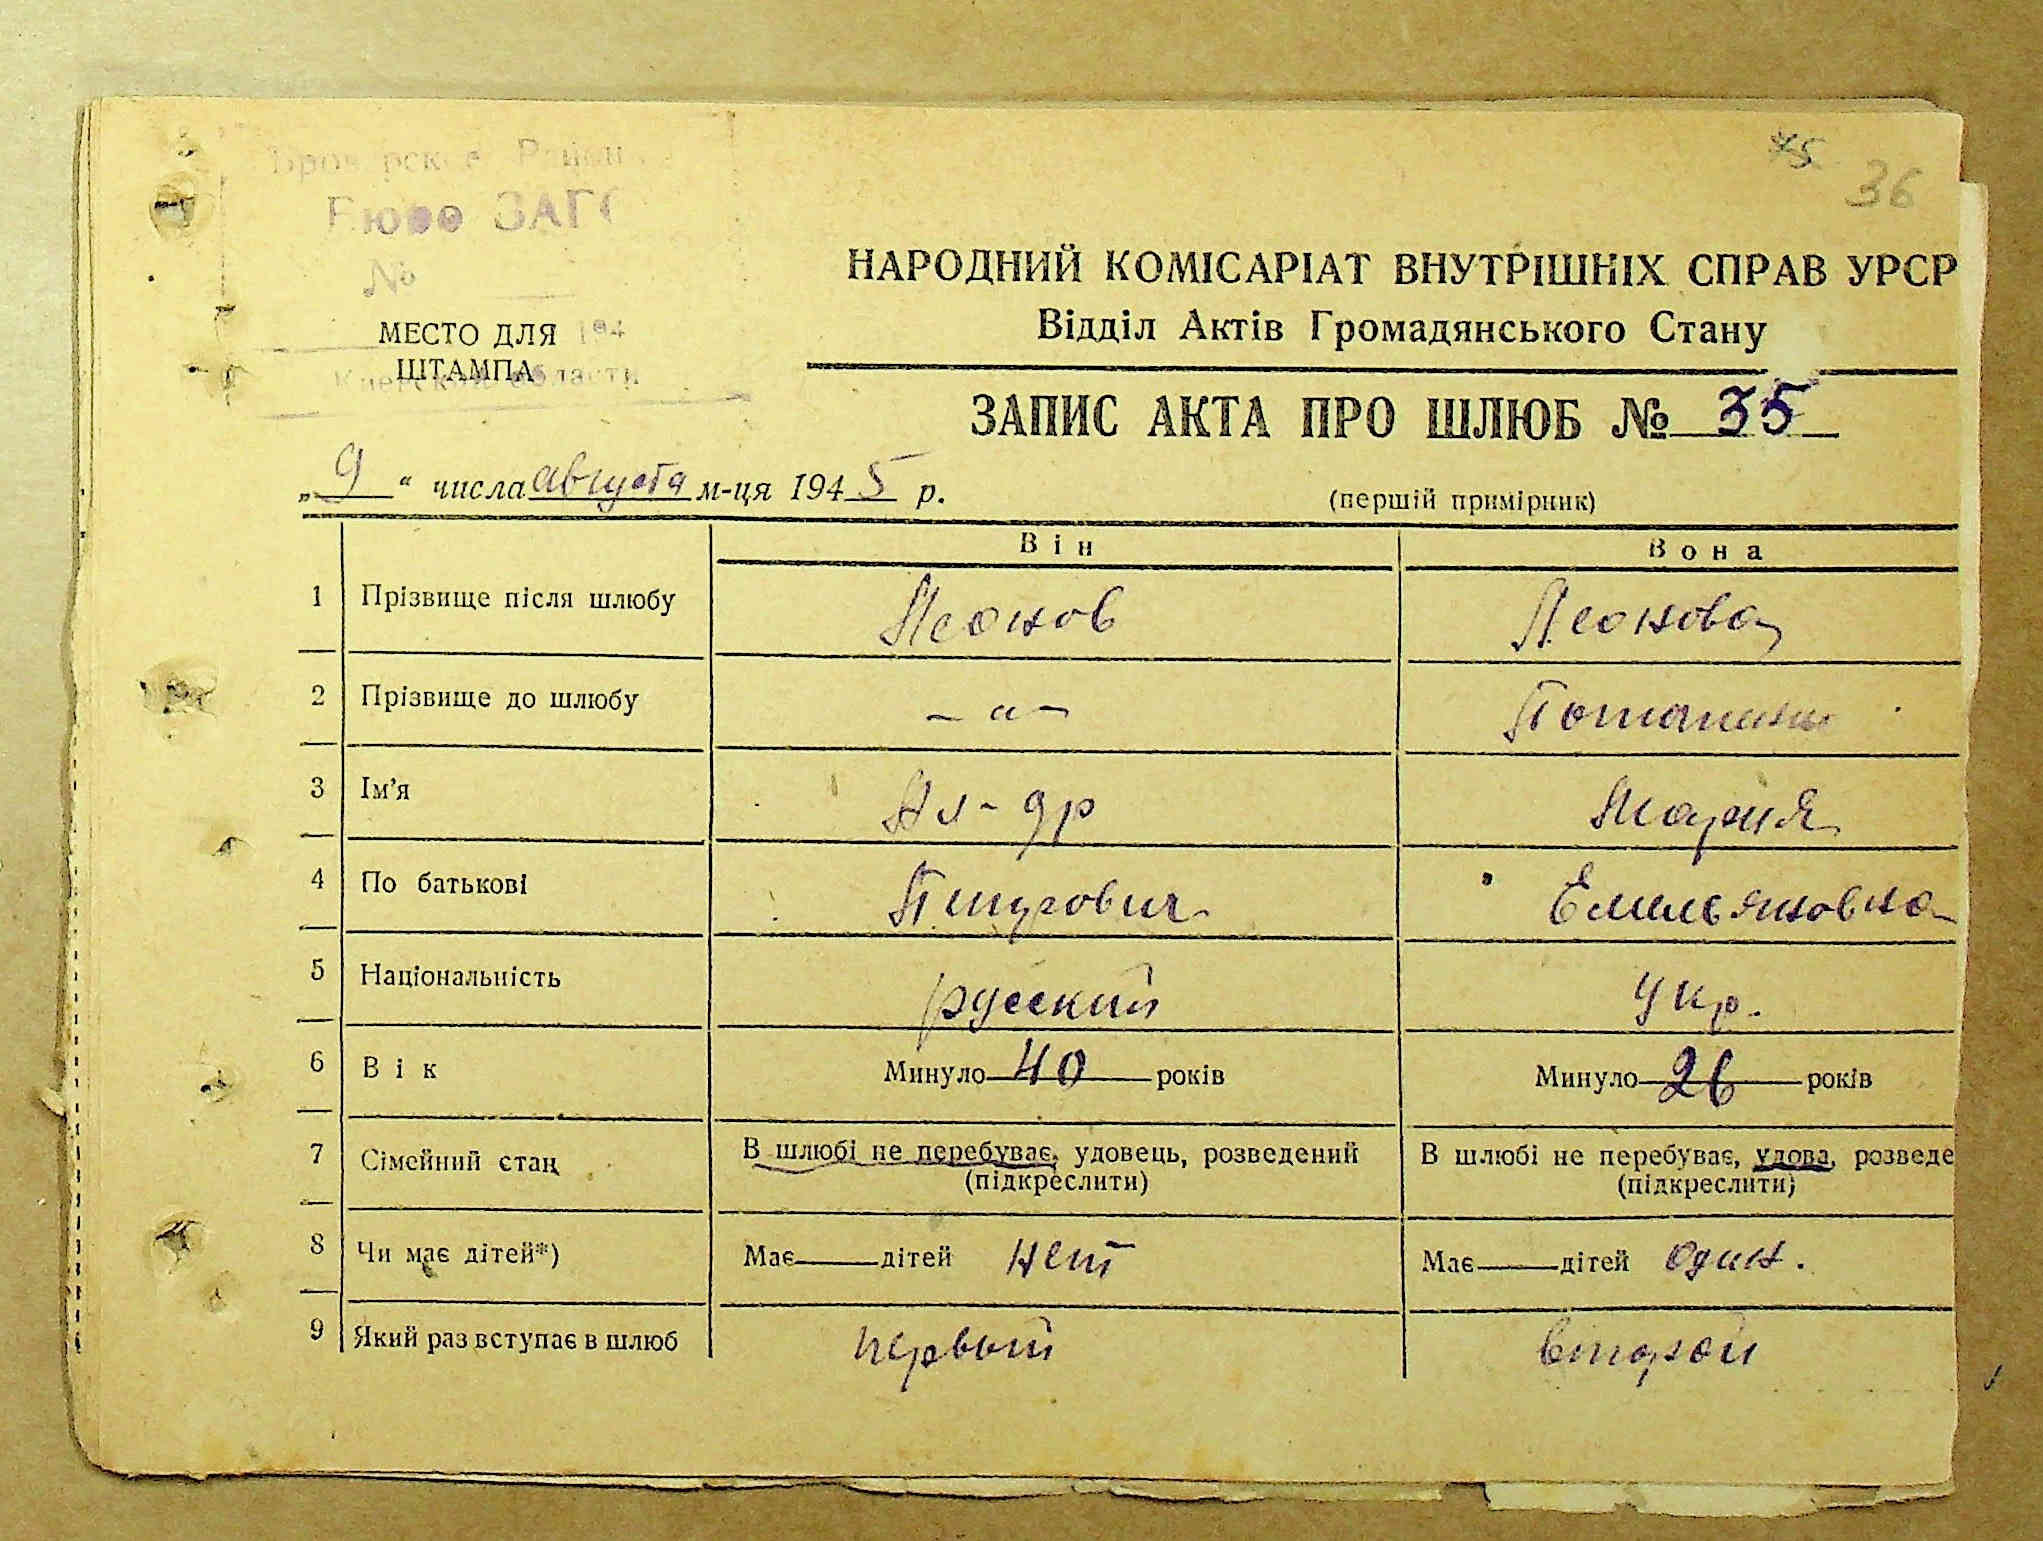 75 36
Бюро ЗАГС
№
МЕСТО ДЛЯ 194
ШТАМПА
Киевской области
НАРОДНИЙ КОМІСАРІАТ ВНУТРІШНІХ СПРАВ УРСР
Відділ Актів Громадянського Стану
ЗАПИС АКТА ПРО ШЛЮБ № 35
„ 9 “ числа августа м-ця 1945 р.
(першій примірник)
Він Вона
1 Прізвище після шлюбу Леонов Леонова
2 Прізвище до шлюбу – " – Потапенко
3 Ім'я Ал-др Мария
4 По батькові Емельяновна
5 Національність русский Укр.
6 Вік Минуло 40 років Минуло 26 років
7 Сімейний стан В шлюбі не перебуває, удовець, розведений В шлюбі не перебуває, удова, розведе
(підкреслити) (підкреслити)
8 Чи має дітей*) Має дітей нет Має дітей один.
9 Який раз вступає в шлюб первый второй